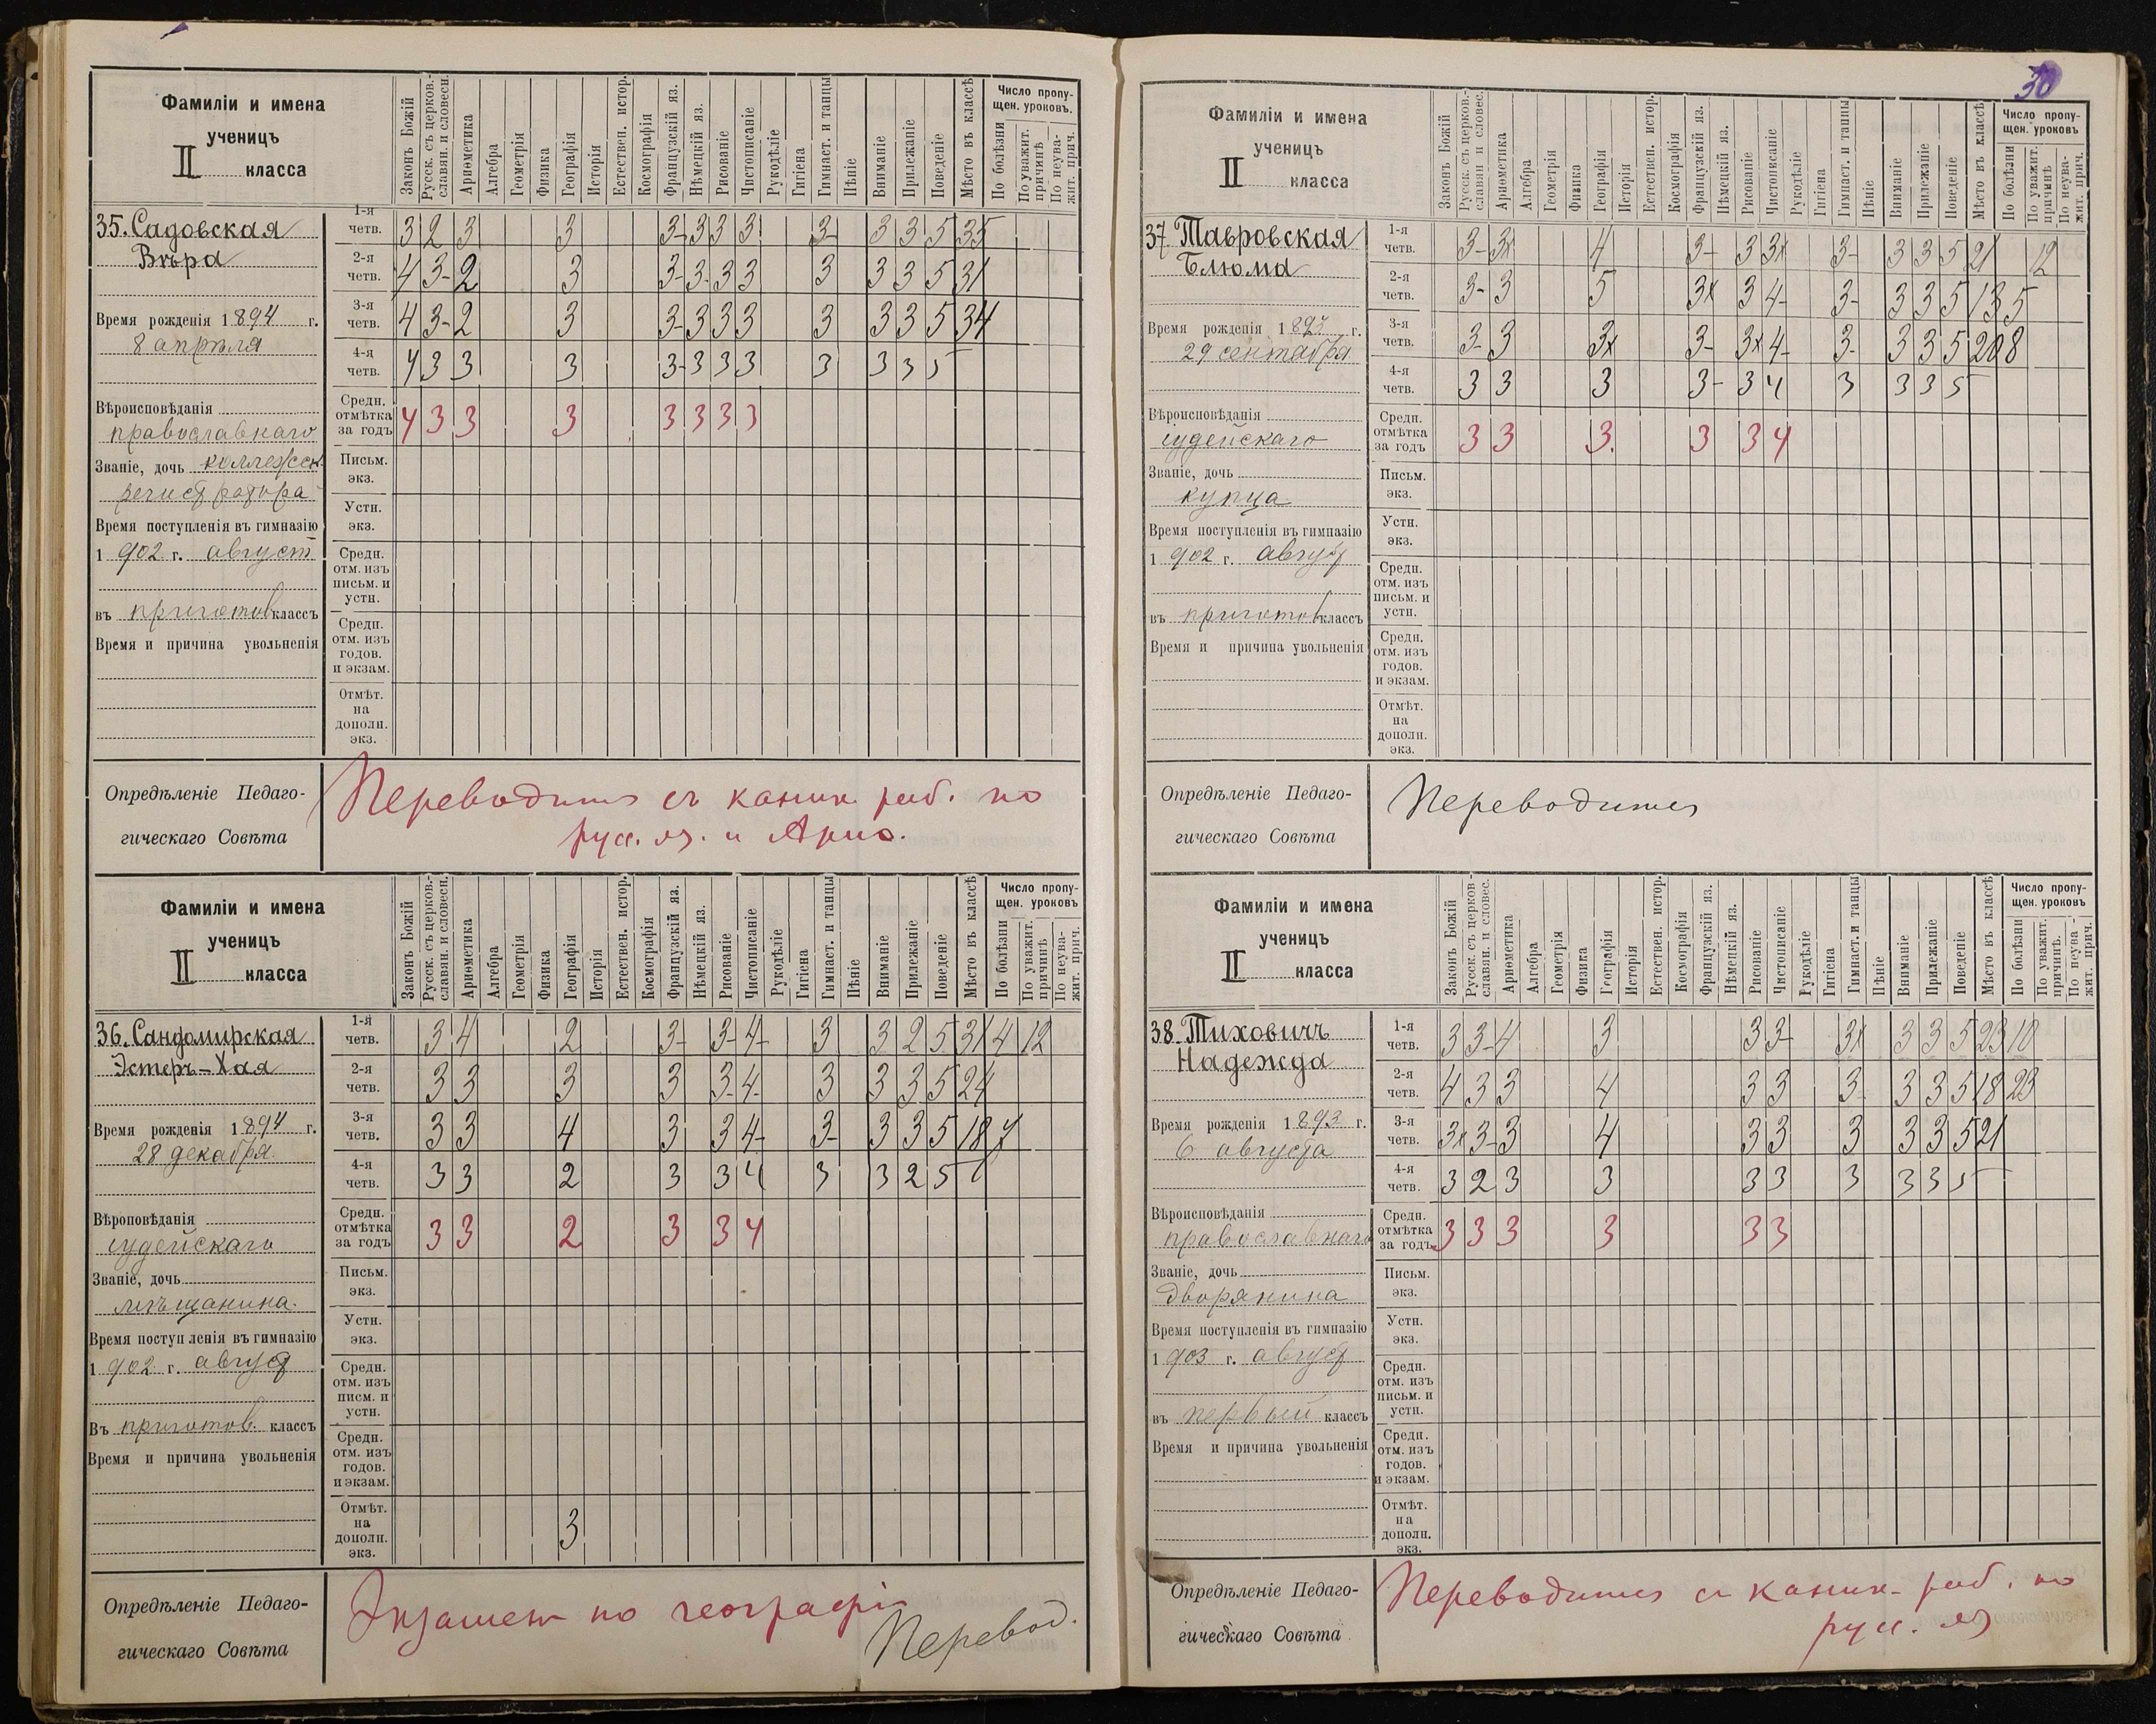 30
Фамиліи и имена
ученицъ
II класса
Законъ Божій
Русск. съ церков.-
славян. и словесн.
Ариѳметика
Алгебра
Геометрія
Физика
Географія
Исторія
Естествен. истор.
Космографія
Французскій яз.
Нѣмецкій яз.
Рисованіе
Чистописаніе
Рукодѣліе
Гигіена
Гимнаст. и танцы
Пѣніе
Вниманіе
Прилежаніе
Поведеніе
Мѣсто въ классѣ
Число пропу-
щен. уроковъ.
По болѣзни
По уважит.
причинѣ
По неува-
жит. прич.
35. Садовская
Вѣра
Время рожденія 1894 г.
8 апрѣля
Вѣроисповѣданія
православнаго
Званіе, дочь коллежск.
регистратора
Время поступленія въ гимназію
1902 г. август
въ приготов классъ
Время и причина увольненія
1-я четв. 3 2 3 3 3- 3 3 3 3- 3 3 5 35
2-я четв. 4 3- 2 3 3- 3- 3 3 3 3 3 5 31
3-я четв. 4 3- 2 3 3- 3 3 3 3 3 3 5 34
4-я четв. 4 3 3 3 3- 3 3 3 3 3 3 5
Средн. отмѣтка за годъ 4 3 3 3 3 3 3 3
Письм. экз.
Устн. экз.
Средн. отм. изъ письм. и устн.
Средн. отм. изъ годов. и экзам.
Отмѣт. на дополн. экз.
Опредѣленіе Педаго-
гическаго Совѣта
Переводится съ каник. раб. по
русс. яз. и Ариѳ.
Фамиліи и имена
ученицъ
II класса
Законъ Божій
Русск. съ церков.-
славян. и словесн.
Ариѳметика
Алгебра
Геометрія
Физика
Географія
Исторія
Естествен. истор.
Космографія
Французскій яз.
Нѣмецкій яз.
Рисованіе
Чистописаніе
Рукодѣліе
Гигіена
Гимнаст. и танцы
Пѣніе
Вниманіе
Прилежаніе
Поведеніе
Мѣсто въ классѣ
Число пропу-
щен. уроковъ
По болѣзни
По уважит.
причинѣ
По неува-
жит. прич.
36. Сандомирская
Эстеръ-Хая
Время рожденія 1894 г.
28 декабря
Вѣроповѣданія
іудейскаго
Званіе, дочь
мѣщанина
Время поступленія въ гимназію
1902 г. август
Въ приготов. классъ
Время и причина увольненія
1-я четв. 3 4 2 3- 3- 4- 3 3 2 5 31 4 12
2-я четв. 3 3 3 3 3- 4- 3 3 3 5 24
3-я четв. 3 3 4 3 3 4- 3- 3 3 5 18 7
4-я четв. 3 3 2 3 3 4 3 3 2 5
Средн. отмѣтка за годъ 3 3 2 3 3 4
Письм. экз.
Устн. экз.
Средн. отм. изъ писм. и устн.
Средн. отм. изъ годов. и экзам.
Отмѣт. на дополн. экз. 3
Опредѣленіе Педаго-
гическаго Совѣта
Экзамен по географіи
Перевод.
Фамиліи и имена
ученицъ
II класса
Законъ Божій
Русск. съ церков.-
славян и словес.
Ариѳметика
Алгебра
Геометрія
Физика
Географія
Исторія
Естествен. истор.
Космографія
Французскій яз.
Нѣмецкій яз.
Рисованіе
Чистописаніе
Рукодѣліе
Гигіена
Гимнаст. и танцы
Пѣніе
Вниманіе
Прилежаніе
Поведеніе
Мѣсто въ классѣ
Число пропу-
щен. уроковъ
По болѣзни
По уважит.
причинѣ
По неува-
жит. прич.
37 Тавровская
Блюма
Время рожденія 1893 г.
29 сентября
Вѣроисповѣданія
іудейскаго
Званіе, дочь
купца
Время поступленія въ гимназію
1902 г. август
въ приготов классъ
Время и причина увольненія
1-я четв. 3- 3x 4 3- 3 3x 3- 3 3 5 21 12
2-я четв. 3- 3 5 3x 3 4- 3- 3 3 5 13 5
3-я четв. 3- 3 3x 3- 3x 4- 3- 3 3 5 20 8
4-я четв. 3 3 3 3- 3 4 3 3 3 5
Средн. отмѣтка за годъ 3 3 3. 3 3 4
Письм. экз.
Устн. экз.
Средн. отм. изъ письм. и устн.
Средн. отм. изъ годов. и экзам.
Отмѣт. на дополн. экз.
Опредѣленіе Педаго-
гическаго Совѣта
Переводится
Фамиліи и имена
ученицъ
II класса
Законъ Божій
Русск. съ церков-
славян. и словес.
Ариѳметика
Алгебра
Геометрія
Физика
Географія
Исторія
Естествен. истор.
Космографія
Французскій яз.
Нѣмецкій яз.
Рисованіе
Чистописаніе
Рукодѣліе
Гигіена
Гимнаст. и танцы
Пѣніе
Вниманіе
Прилежаніе
Поведеніе
Мѣсто въ классѣ
Число пропу-
щен. уроковъ
По болѣзни
По уважит.
причинѣ.
По неува-
жит. прич.
38. Тиховичъ
Надежда
Время рожденія 1893 г.
6 августа
Вѣроисповѣданія
православнаго
Званіе, дочь
дворянина
Время поступленія въ гимназію
1903 г. август
въ первый классъ
Время и причина увольненія
1-я четв. 3 3- 4 3 3 3- 3x 3 3 5 23 10
2-я четв. 4 3 3 4 3 3 3- 3 3 5 18 23
3-я четв. 3x 3- 3 4 3 3 3 3 3 5 21
4-я четв. 3 2 3 3 3 3 3 3 3 5
Средн. отмѣтка за годъ 3 3 3 3 3 3
Письм. экз.
Устн. экз.
Средн. отм. изъ письм. и устн.
Средн. отм. изъ годов. и экзам.
Отмѣт. на дополн. экз.
Опредѣленіе Педаго-
гическаго Совѣта
Переводится съ каник. раб. по
русс. яз